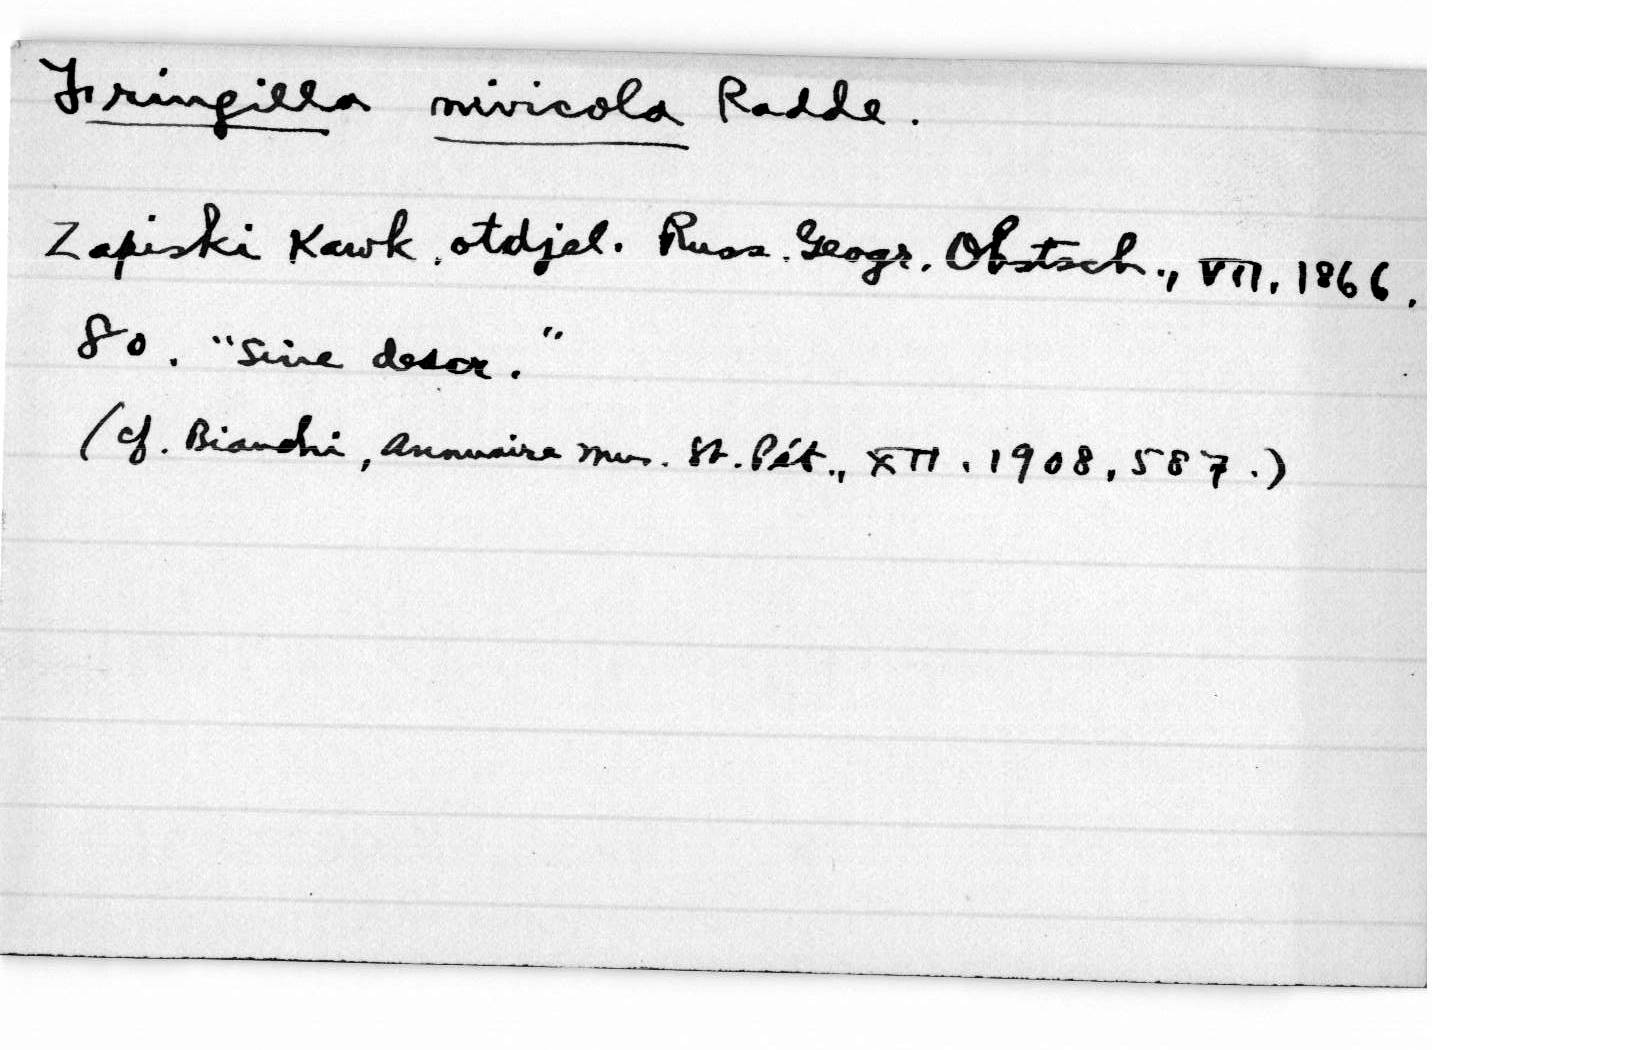 Fringilla nivicola Radde.
Zapiski Kawk. otdjel. Russ. Geogr. Obstsch., VII, 1866.
80. "Sine descr."
(cf. Bianchi, Annuaire Mus. St. Pét., XII, 1908, 587.)